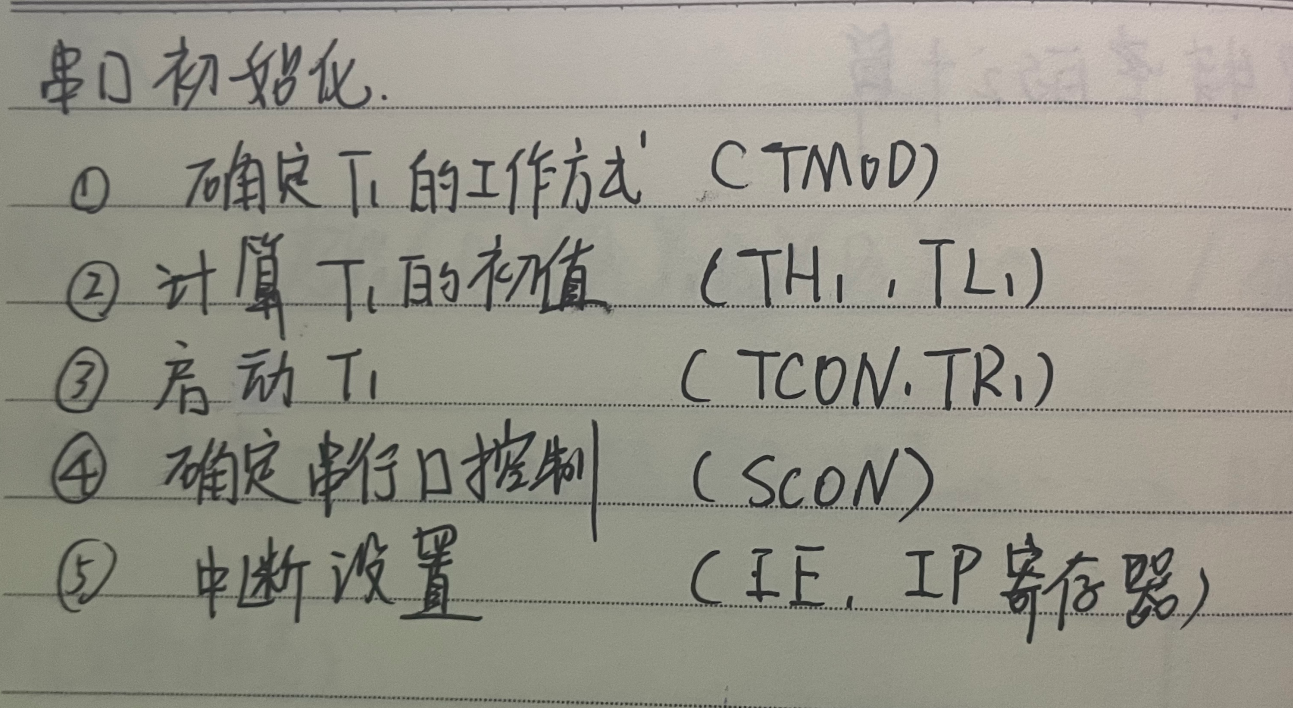 串口初始化.
① 确定T1的工作方式 (TMOD)
② 计算T1的初值 (TH1, TL1)
③ 启动T1 (TCON.TR1)
④ 确定串行口控制 (SCON)
⑤ 中断设置 (IE, IP寄存器)